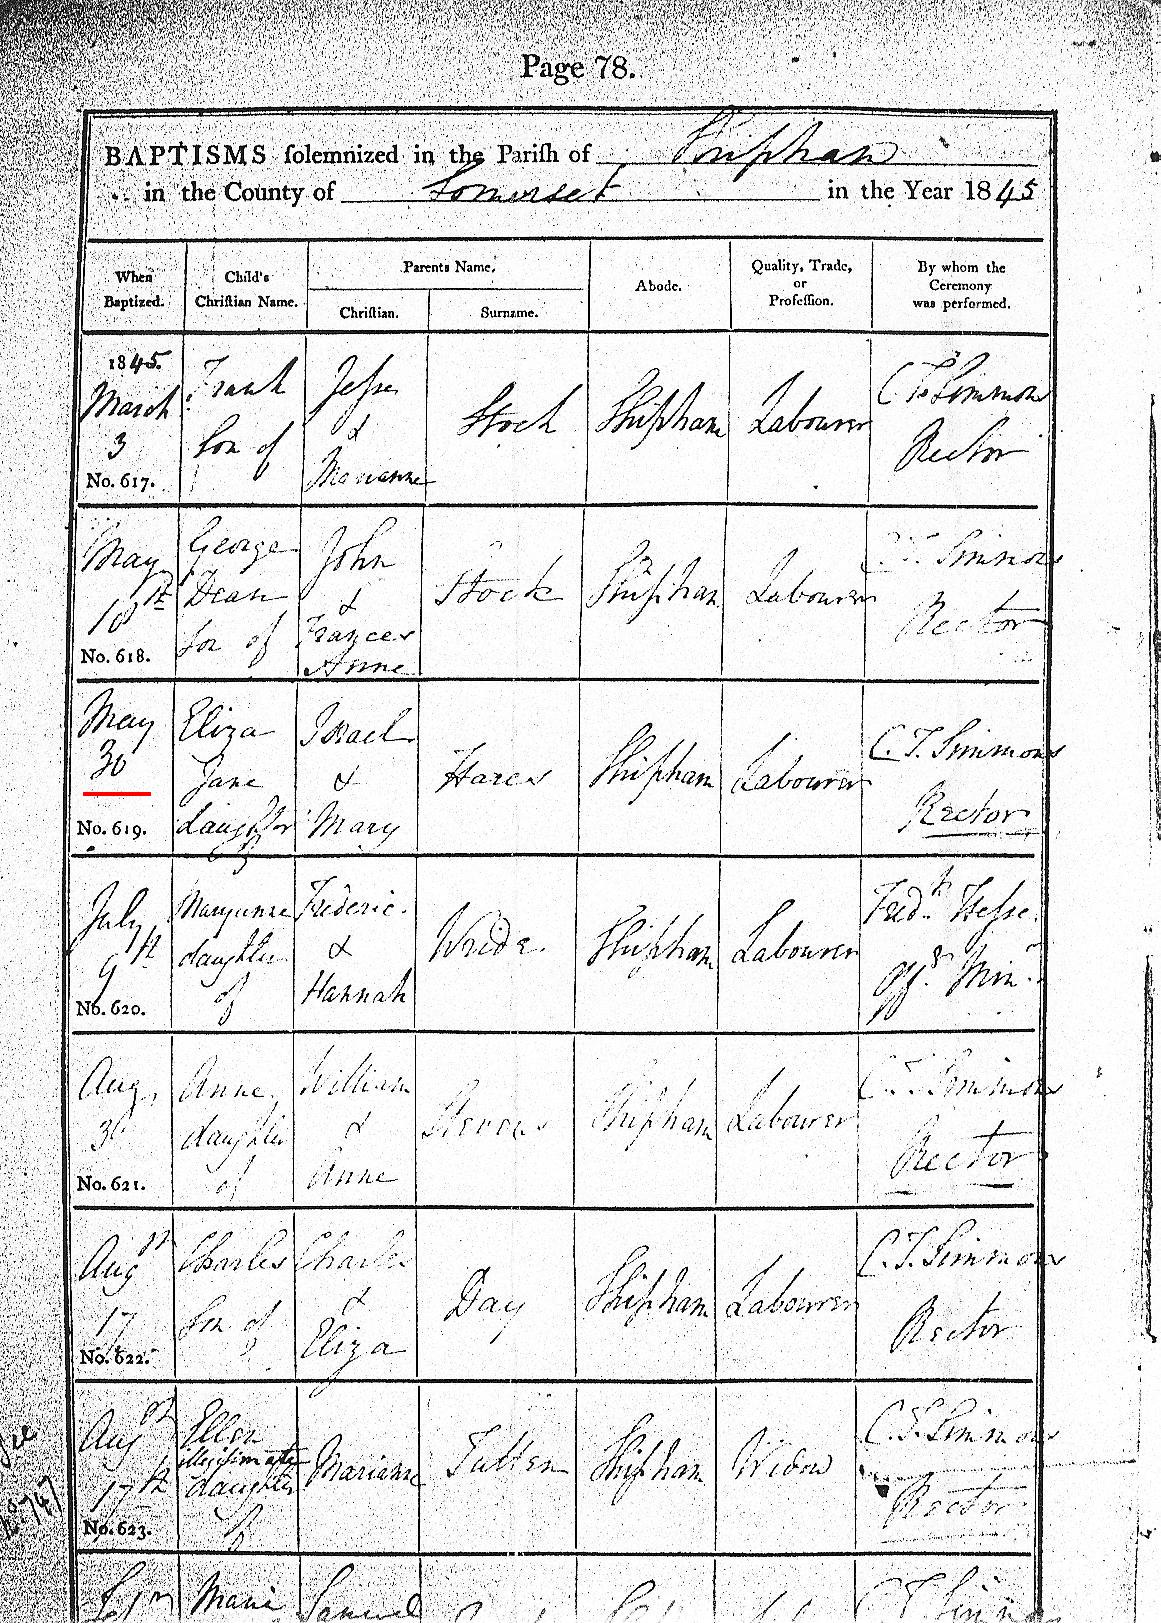 Page 78.
BAPTISMS solemnized in the Parish of Shipham
in the County of Somerset in the Year 1845
When Baptized. Child's Christian Name. Parents Name. Abode. Quality, Trade, or Profession. By whom the Ceremony was performed.
Christian. Surname.
1845.
March 3 Frank Son of Jesse & Marianne Stock Shipham Labourer C T Simmons Rector
No. 617.
May George Dean Son of John & Frances Anne Stock Shipham Labourer C. T. Simmons Rector
No. 618.
May 30 Eliza Jane daughter of Israel & Mary Hares Shipham Labourer C. T. Simmons Rector
No. 619.
July 9th Maryanne daughter of Frederic & Hannah Wride Shipham Labourer Fredk Hesse Offg Minr
No. 620.
Aug. Anne daughter of William & Anne Stevens Shipham Labourer C. T. Simmons Rector
No. 621.
Augst 17 Charles Son of Charles & Eliza Day Shipham Labourer C. T. Simmons Rector
No. 622.
Augst 17th Ellen illegitimate daughter of Marianne Shipham Widow C. T. Simmons Rector
No. 623.
Maria Samuel
747